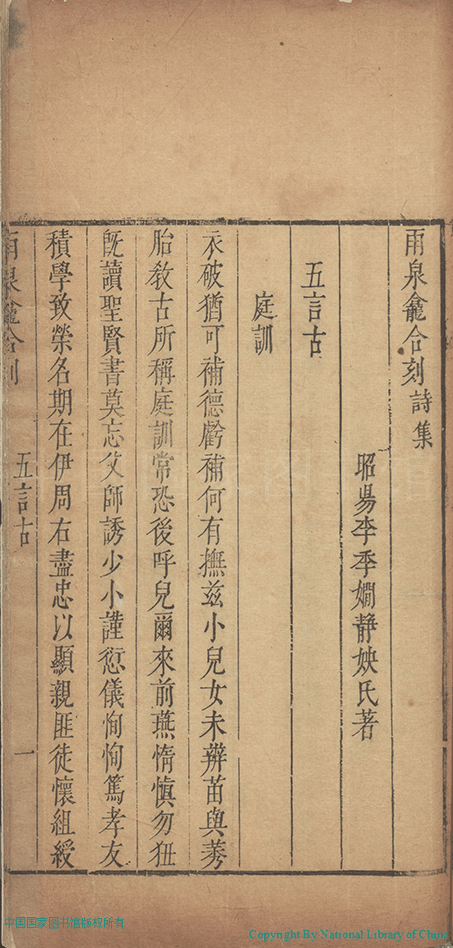 雨泉龕合刻詩集
昭陽李季嫺靜姎氏著
五言古
庭訓
衣破猶可補德虧補何有撫兹小兒女未辨苗與莠
胎敎古所稱庭訓常恐後呼兒爾來前燕惰愼勿狃
旣讀聖賢書莫忘父師誘少小謹愆儀恂恂篤孝友
積學致榮名期在伊周右盡忠以顯親匪徒懷組綬
雨泉龕合刻
五言古
一
中国国家图书馆版权所有
Copyright By National Library of China